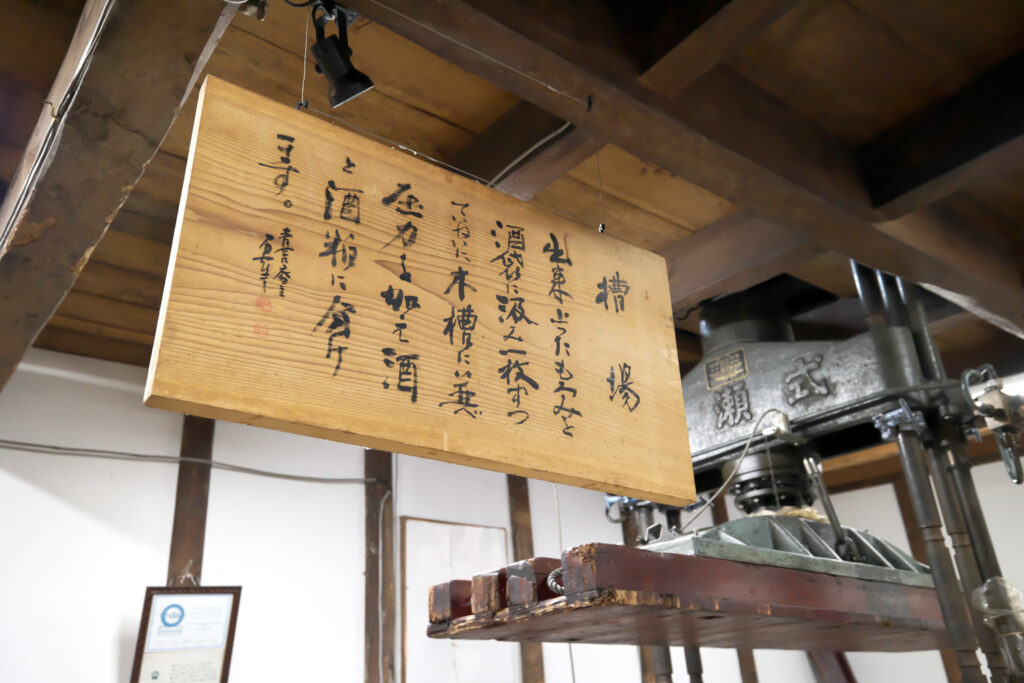 槽場
出来上ったもろみを
酒袋に汲み一枚ずつ
ていねいに木槽に並べ
圧力を加え酒
と酒粕に分け
ます。
瀬式